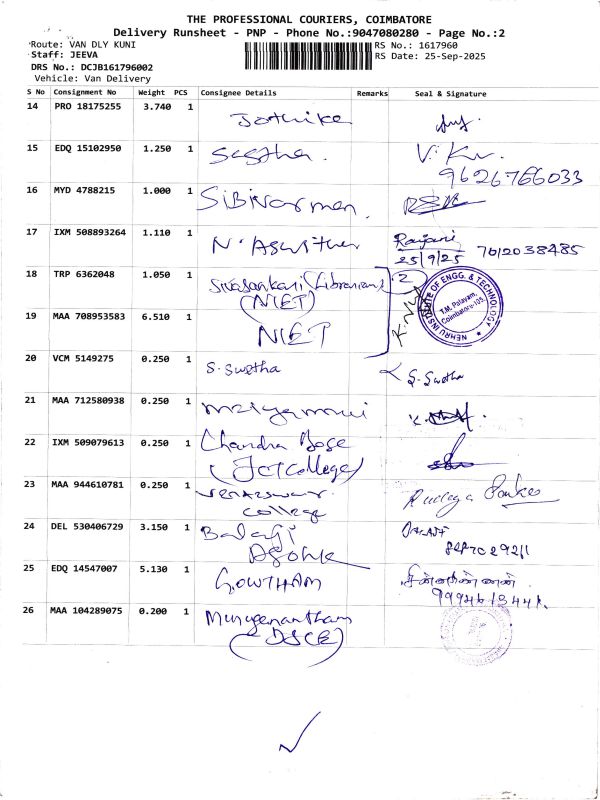 THE PROFESSIONAL COURIERS, COIMBATORE
Delivery Runsheet - PNP - Phone No.:9047080280 - Page No.:2
Route: VAN DLY KUNI
RS No.: 1617960
Staff: JEEVA
RS Date: 25-Sep-2025
DRS No.: DCJB161796002
Vehicle: Van Delivery
S No Consignment No Weight PCS Consignee Details Remarks Seal & Signature
14 PRO 18175255 3.740 1 Jothika
15 EDQ 15102950 1.250 1 Sastha. V. Kv.
9626766033
16 MYD 4788215 1.000 1 SiBiVarman.
17 IXM 508893264 1.110 1 N. Aswitha Ranjani 7612038485
25/9/25
18 TRP 6362048 1.050 1 Sivasankari (Librarian) 2
(NIET)
NEHRU INSTITUTE OF ENGG. & TECHNOLOGY
T.M. Palayam,
Coimbatore-105.
19 MAA 708953583 6.510 1 NIET
20 VCM 5149275 0.250 1 S. Swetha S. Swetha
21 MAA 712580938 0.250 1
22 IXM 509079613 0.250 1 Chandra Bose
(JCT College)
23 MAA 944610781 0.250 1
College
24 DEL 530406729 3.150 1 Balaji
Ashok
25 EDQ 14547007 5.130 1 GOWTHAM
26 MAA 104289075 0.200 1 Muruganantham